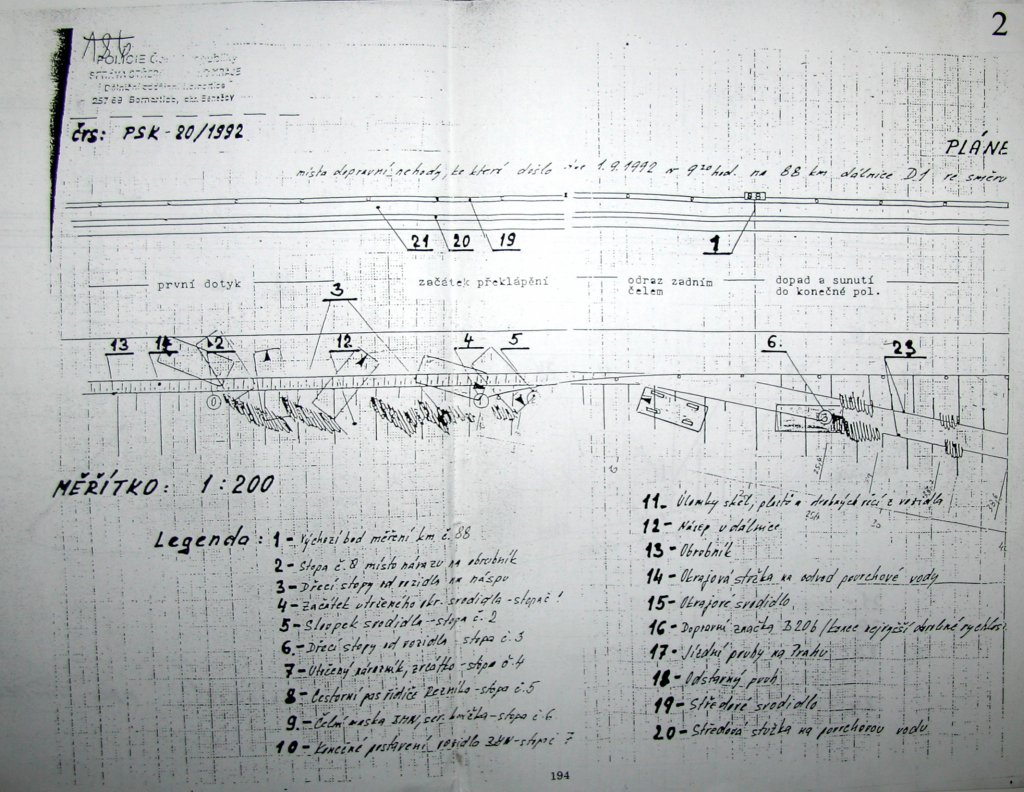 2
186
POLICIE
257 69 Bernartice, okr. Benešov
črs: PSK - 20/1992
PLÁNE
místa dopravní nehody, ke které došlo dne 1.9.1992 v 9 20 hod. na 88 km dálnice D1 ve směru
21 20 19 1
první dotyk
začátek překlápění
odraz zadním
čelem
dopad a sunutí
do konečné pol.
3
13 14 2 12 4 5 6. 23
MĚŘÍTKO: 1:200
Legenda: 1 - Výchozí bod měření km č. 88
2 - Stopa č. 0 místo nárazu na obrubník
3 - Dřecí stopy od vozidla na náspu
4 - Začátek utrženého okr. svodidla - stopa č 1
5 - Sloupek svodidla - stopa č. 2
6. - Dřecí stopy od vozidla - stopa č. 3
7 - Utržený nárazník, zrcátko - stopa č. 4
8 - Cestovní pas řidiče Rezníka - stopa č. 5
9. - Čelní maska BMW, ser. knížka - stopa č. 6
10 - Konečné postavení vozidla BMW - stopa č 7
11. - Úlomky skel, plastů a drobných věcí z vozidla
12 - Násep u dálnice
13 - Obrubník
14 - Okrajová strážka na odvod povrchové vody
15 - Okrajové svodidlo
16 - Dopravní značka B20b /konec nejvyšší dovolené rychlos
17 - Jízdní pruhy na Prahu
18 - Odstavný pruh
19 - Středové svodidlo
20 - Středová stružka na povrchovou vodu
194